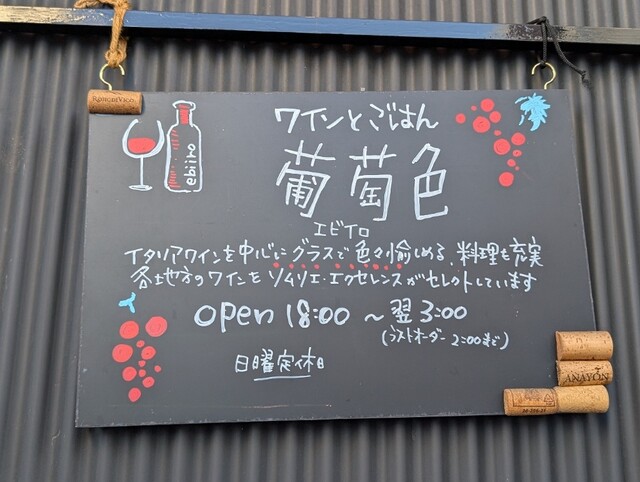 RONCHI VICO
ebiiro
ワインとごはん
葡萄色
エビイロ
イタリアワインを中心にグラスで色々愉しめる、料理も充実
各地方のワインをソムリエ・エクセレンスがセレクトしています
open 18:00 〜 翌3:00
(ラストオーダー 2:00まで)
日曜定休日
ANAYON